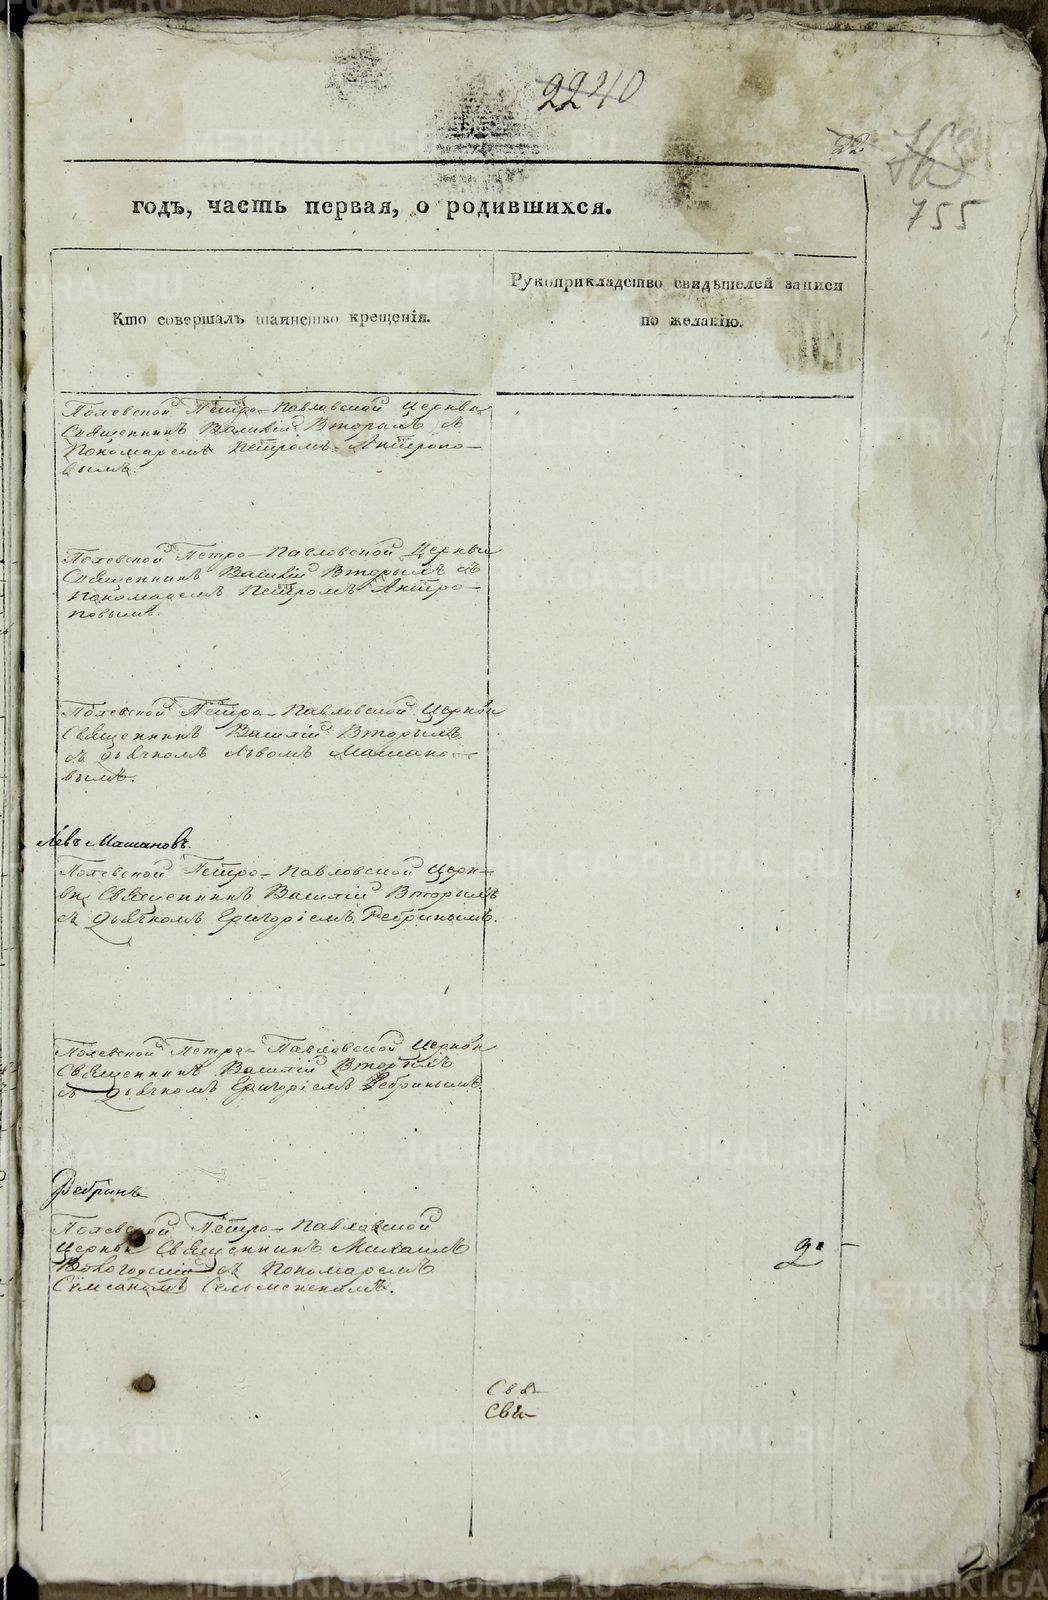 2240
22.
755
годъ, часть первая, о родившихся.
Кто совершалъ таинство крещенія.
Рукоприкладство свидѣтелей записи
по желанію.
Полевской Петро-Павловской Церкви
Священникъ Василій Вторыхъ съ
Пономаремъ Петромъ Антропо-
вымъ.
Полевской Петро-Павловской Церкви
Священникъ Василій Вторыхъ съ
Пономаремъ Петромъ Антро-
повымъ.
Полевской Петро-Павловской Церкви
Священникъ Василій Вторыхъ
съ дьячкомъ Львомъ Машано-
вымъ.
Левъ Машановъ.
Полевской Петро-Павловской Церк-
ви Священникъ Василій Вторыхъ
съ дьячкомъ Григоріемъ Ребринымъ.
Полевской Петро-Павловской Церкви
Священникъ Василій Вторыхъ
съ дьячкомъ Григоріемъ Ребринымъ.
Ребринъ
Полевской Петро-Павловской
Церкви Священникъ Михаилъ
съ Пономаремъ
METRIKI.GASO-URAL.RU